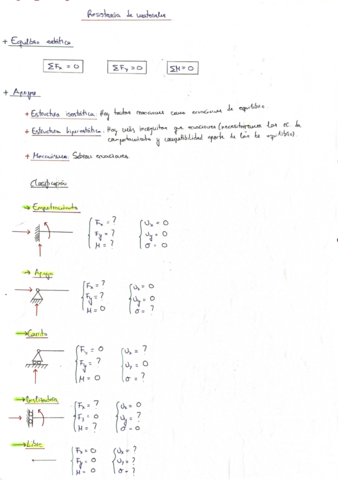 Resistencia de materiales
+ Equilibrio estático
ΣFx = 0 ΣFy = 0 ΣM = 0
+ Apoyos
+ Estructura isostática. Hay tantas reacciones como ecuaciones de equilibrio.
+ Estructura hiperestática. Hay más incógnitas que ecuaciones (necesitaremos las ec. de
comportamiento y compatibilidad aparte de las de equilibrio).
+ Mecanismos. Sobran ecuaciones.
Clasificación
→ Empotramiento
Fx = ? Ux = 0
Fy = ? Uy = 0
M = ? σ = 0
→ Apoyo
Fx = ? Ux = 0
Fy = ? Uy = 0
M = 0 σ = ?
→ Carrito
Fx = 0 Ux = ?
Fy = ? Uy = 0
M = 0 σ = ?
Fx = ? Ux = 0
Fy = 0 Uy = ?
M = ? σ = 0
→ Libre
Fx = 0 Ux = ?
Fy = 0 Uy = ?
M = 0 σ = ?